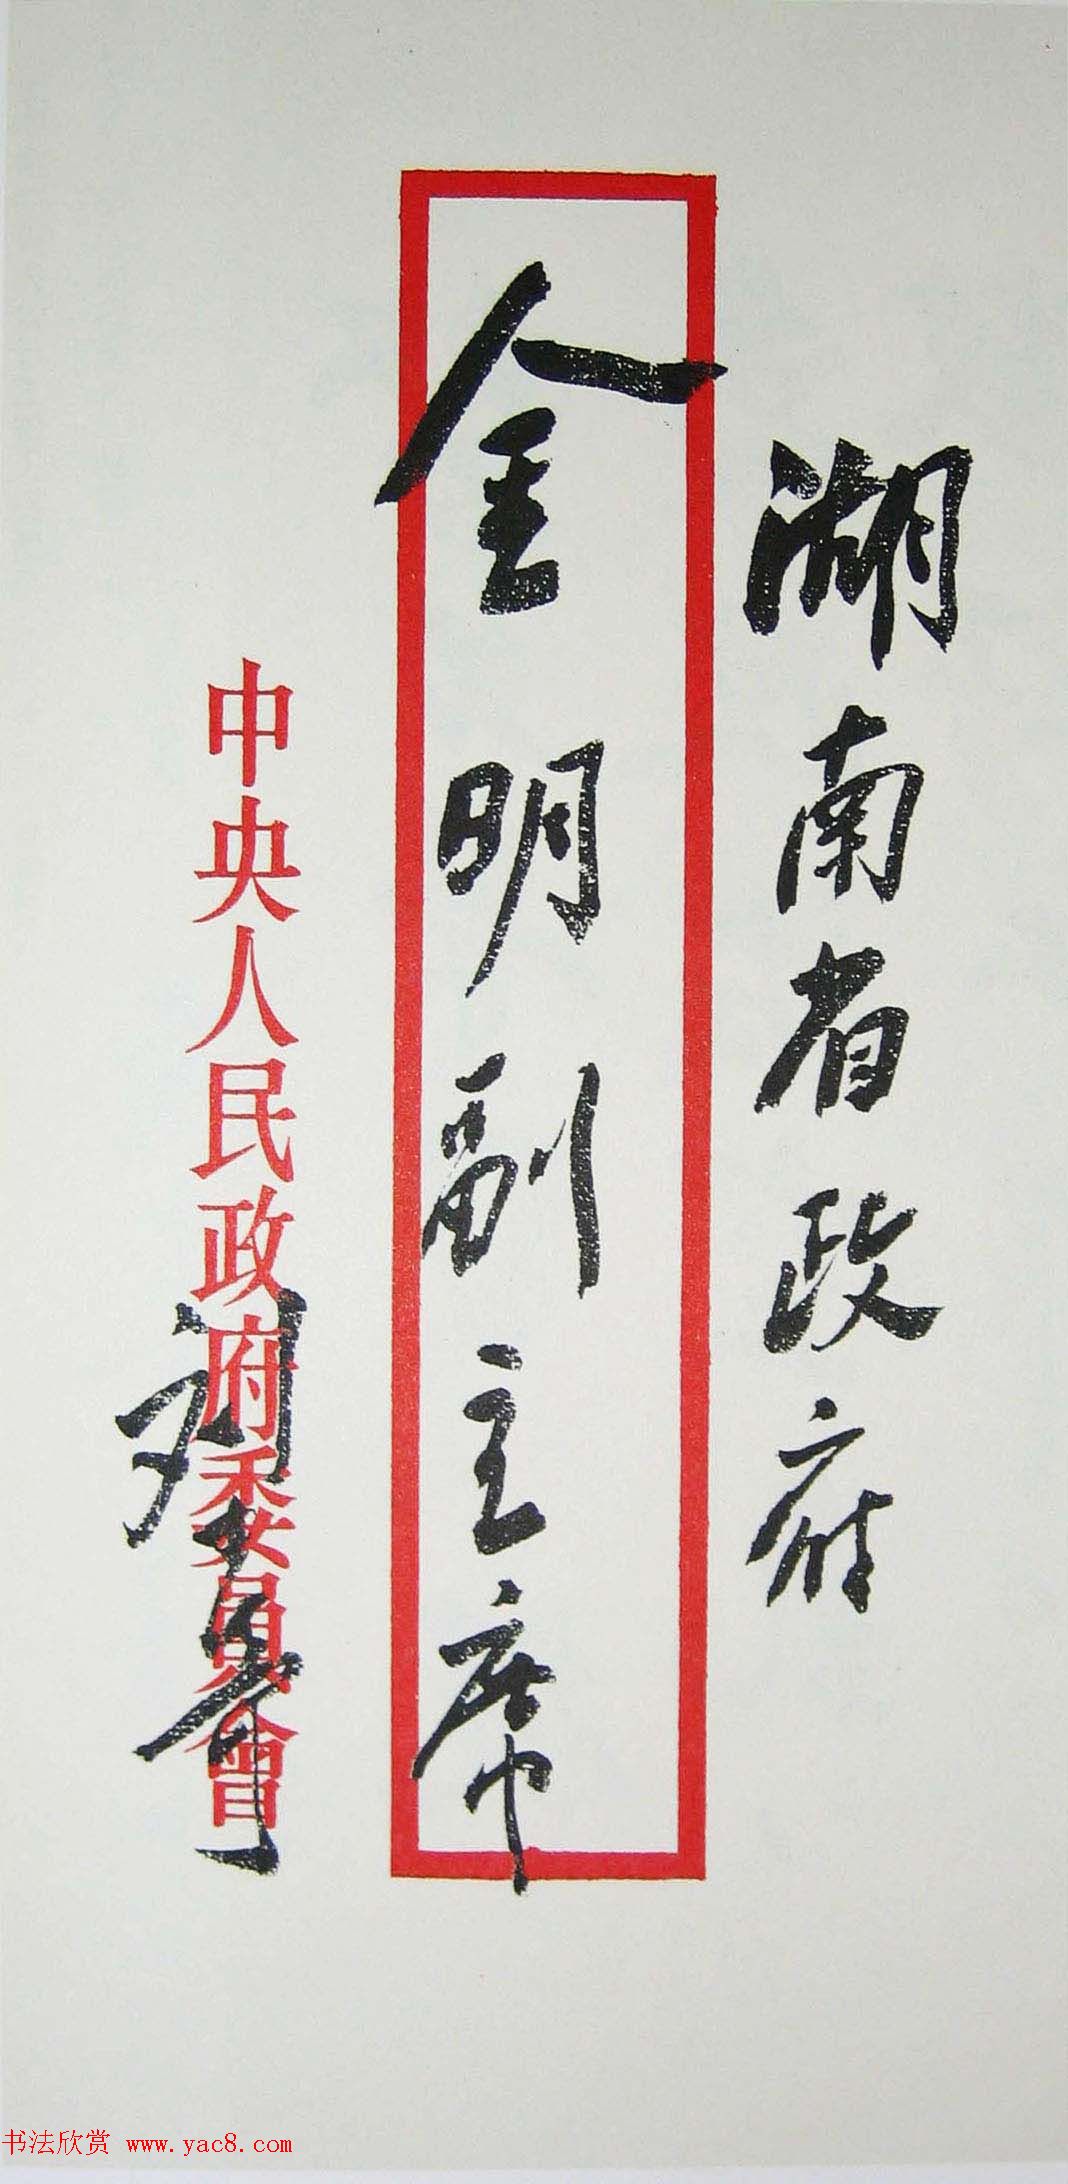 湖南省政府
金明副主席
中央人民政府委員會
刘少奇
书法欣赏 www.yac8.com